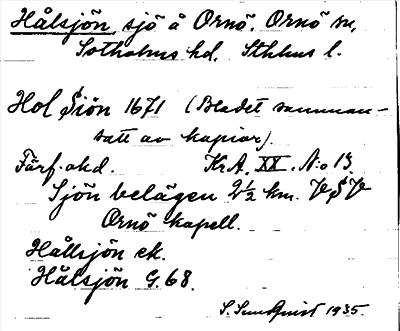 Hålsjön, sjö å Ornö. Ornö sn,
Sotholms hd. Sthlms l.
Hol Siön 1671 (Bladet samman-
satt av kopior).
Färf. okd. KrA. XX. N:o 13.
Sjön belägen 2½ km. VSV
Ornö kapell.
Hållsjön ek.
Hålsjön G. 68.
S. Sundquist 1935.